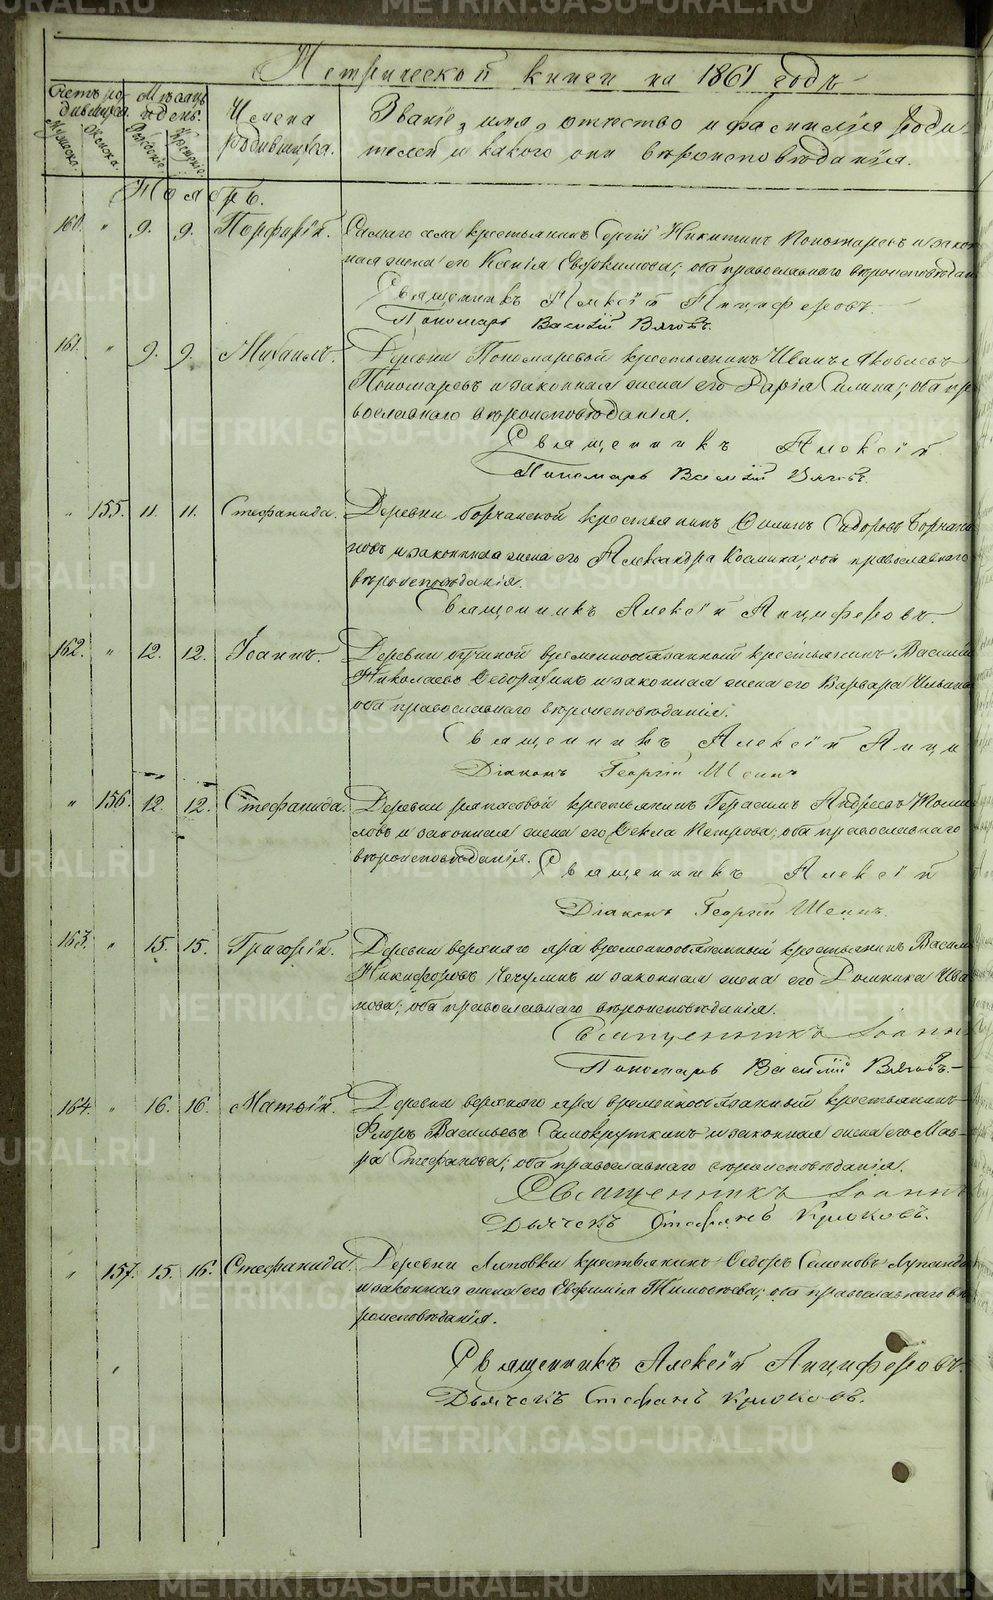 Метрической книги на 1861 годъ
Счетъ родившихся.
Мужеска.
Женска.
Мѣсяцъ и день.
Рожденія.
Крещенія.
Имена родившихся.
Званіе, имя, отчество и фамилія роди-
телей и какого они вѣроисповѣданія.
Ноябрь.
160. " 9. 9. Порфирій. Самаго села крестьянинъ Сергій Никитинъ Пономаревъ и закон-
ная жена его Ксенія Евфимова; оба православнаго вѣроисповѣдан
Священникъ Алексій Анциферовъ.
Пономарь Василій Вяговъ.
161. " 9. 9. Михаилъ. Деревни Пономаревой крестьянинъ Иванъ Яковлевъ
Пономаревъ и законная жена его Дарія Силина; оба пр
вославнаго вѣроисповѣданія.
Священникъ Алексій
Пономарь Василій Вяговъ.
" 155. 11. 11. Стефанида. Деревни крестьянинъ Филипъ Сидоровъ
и законная жена его Александра Космина; оба православнаго
вѣроисповѣданія.
Священникъ Алексій Анциферовъ.
162. " 12. 12. Іоаннъ. Деревни временнообязанный крестьянинъ Василій
Николаевъ и законная жена его Варвара Ильина
оба православнаго вѣроисповѣданія.
Священникъ Алексій Анци
Діаконъ Георгій Шеинъ
" 156. 12. 12. Стефанида. Деревни крестьянинъ Герасимъ Андреевъ
ловъ и законная жена его Ѳекла Петрова; оба православнаго
вѣроисповѣданія. Священникъ Алексій
Діаконъ Георгій Шеинъ.
163. " 15. 15. Григорій. Деревни верхняго яра временнообязанный крестьянинъ Васил
Никифоровъ и законная жена его Домника Ива
нова; оба православнаго вѣроисповѣданія.
Священникъ Іоанн
Пономарь Василій Вяговъ.
164. " 16. 16. Матѳій. Деревни верхняго яра временнообязанный крестьянинъ
Флоръ Васильевъ Самокруткинъ и законная жена его Мав-
ра Стефанова; оба православнаго вѣроисповѣданія.
Священникъ Іоанн
Дьячекъ Стефанъ Крюковъ.
" 157. 15. 16. Стефанида. Деревни Липовки крестьянинъ Ѳедоръ Семеновъ
и законная жена его Евфимія Тимоѳеева; оба православнаго вѣ
роисповѣданія.
Священникъ Алексій Анциферовъ.
Дьячекъ Стефанъ Крюковъ.
METRIKI.GASO-URAL.RU